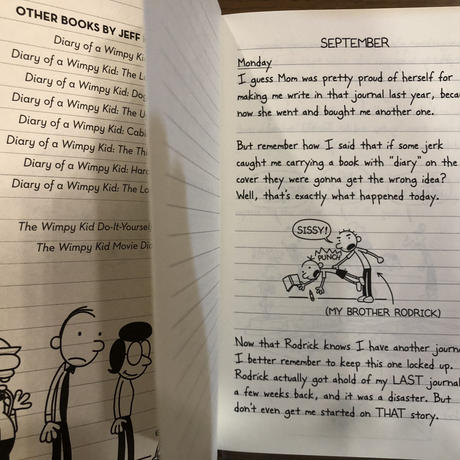 OTHER BOOKS BY JEFF
Diary of a Wimpy Ki
Diary of a Wimpy Kid: The L
Diary of a Wimpy Kid: Dog
Diary of a Wimpy Kid: The U
Diary of a Wimpy Kid: Cabi
Diary of a Wimpy Kid: The Th
Diary of a Wimpy Kid: Hard
Diary of a Wimpy Kid: The Lo
The Wimpy Kid Do-It-Yoursel
The Wimpy Kid Movie Dia
SEPTEMBER
Monday
I guess Mom was pretty proud of herself for
making me write in that journal last year, beca
now she went and bought me another one.
But remember how I said that if some jerk
caught me carrying a book with "diary" on the
cover they were gonna get the wrong idea?
Well, that's exactly what happened today.
SISSY!
PUNCH
(MY BROTHER RODRICK)
Now that Rodrick knows I have another journ
I better remember to keep this one locked up.
Rodrick actually got ahold of my LAST journal
a few weeks back, and it was a disaster. But
don't even get me started on THAT story.